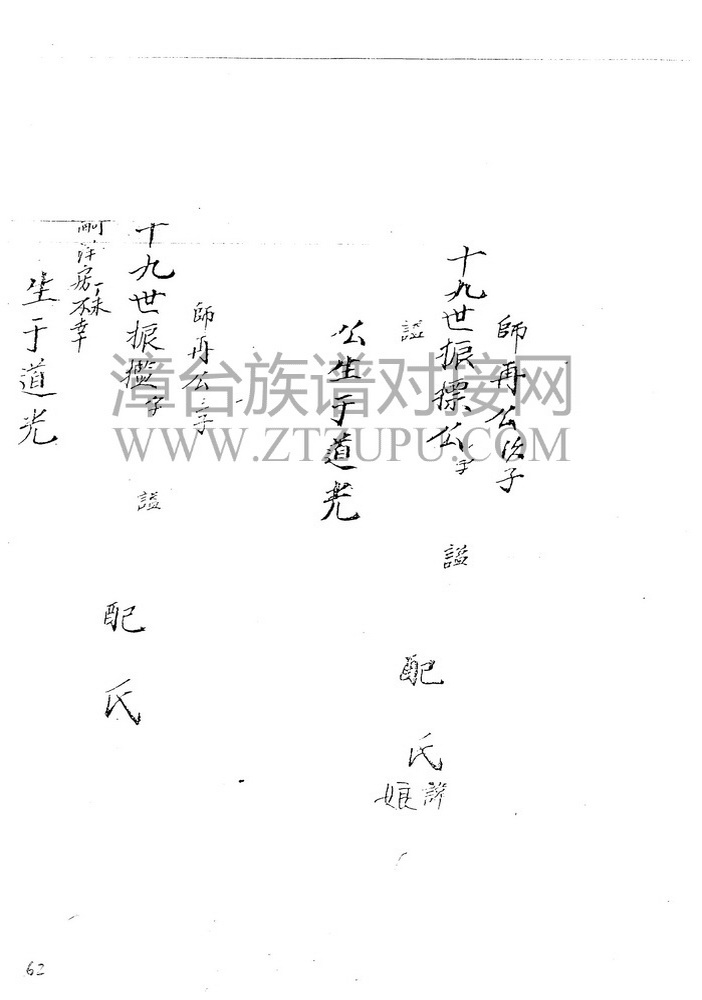 師再公次子
十九世振標公字
諡
配
氏
諱
娘
諡
公生于道光
師再公三子
十九世振
字
諡
配
氏
嗣詳房丁未
不幸
生于道光
漳台族谱对接网
WWW.ZTZUPU.COM
62